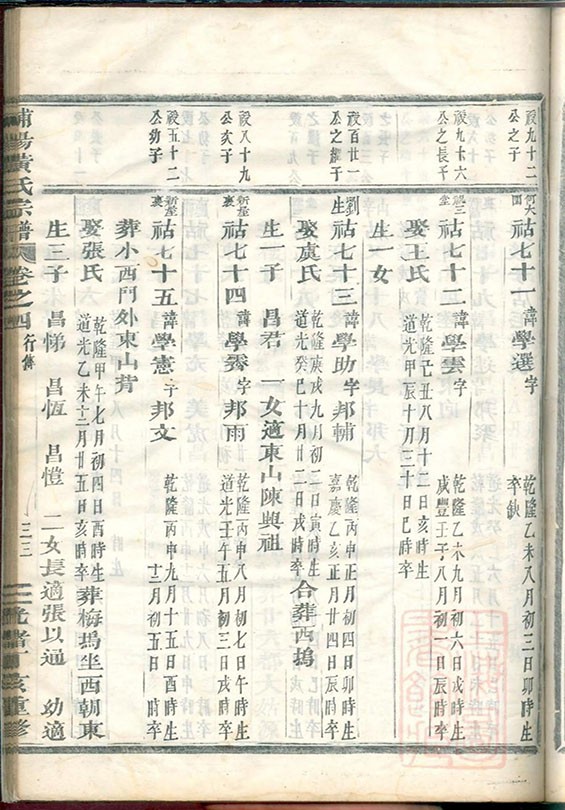 祋九十二公之子
祜七十一 諱學選 字 乾隆乙未八月初三日卯時生 卒缺
祋九十六公之長子
祜七十二 諱學雲 字 乾隆乙未九月初六日戌時生 咸豐壬子八月初一日辰時卒
娶王氏 乾隆己丑八月十二日亥時生 道光甲辰十月三十日巳時卒
生一女
祋百廿一公之繼子
祜七十三 諱學助 字邦輔 乾隆丙申正月初四日卯時生 嘉慶乙亥正月廿四日戌時卒
娶虞氏 乾隆庚戌九月初二日寅時生 道光癸巳十月廿二日戌時卒 合葬西塢
生一子 昌君 一女適東山陳興祖
祋八十九公次子
祜七十四 諱學秀 字邦雨 乾隆丙申八月初七日午時生 道光壬午五月初三日戌時卒
祋五十二公幼子
祜七十五 諱學憲 字邦文 乾隆丙申九月十五日酉時生 十二月初五日 時卒
葬小西門外東山背
娶張氏 乾隆甲午七月初四日酉時生 道光乙未十二月廿五日亥時卒 葬梅塢坐西朝東
生三子 昌悌 昌恆 昌愷 二女長適張以通 幼適
浦陽黃氏宗譜 卷之四 行傳 三三 光緒 亥重修